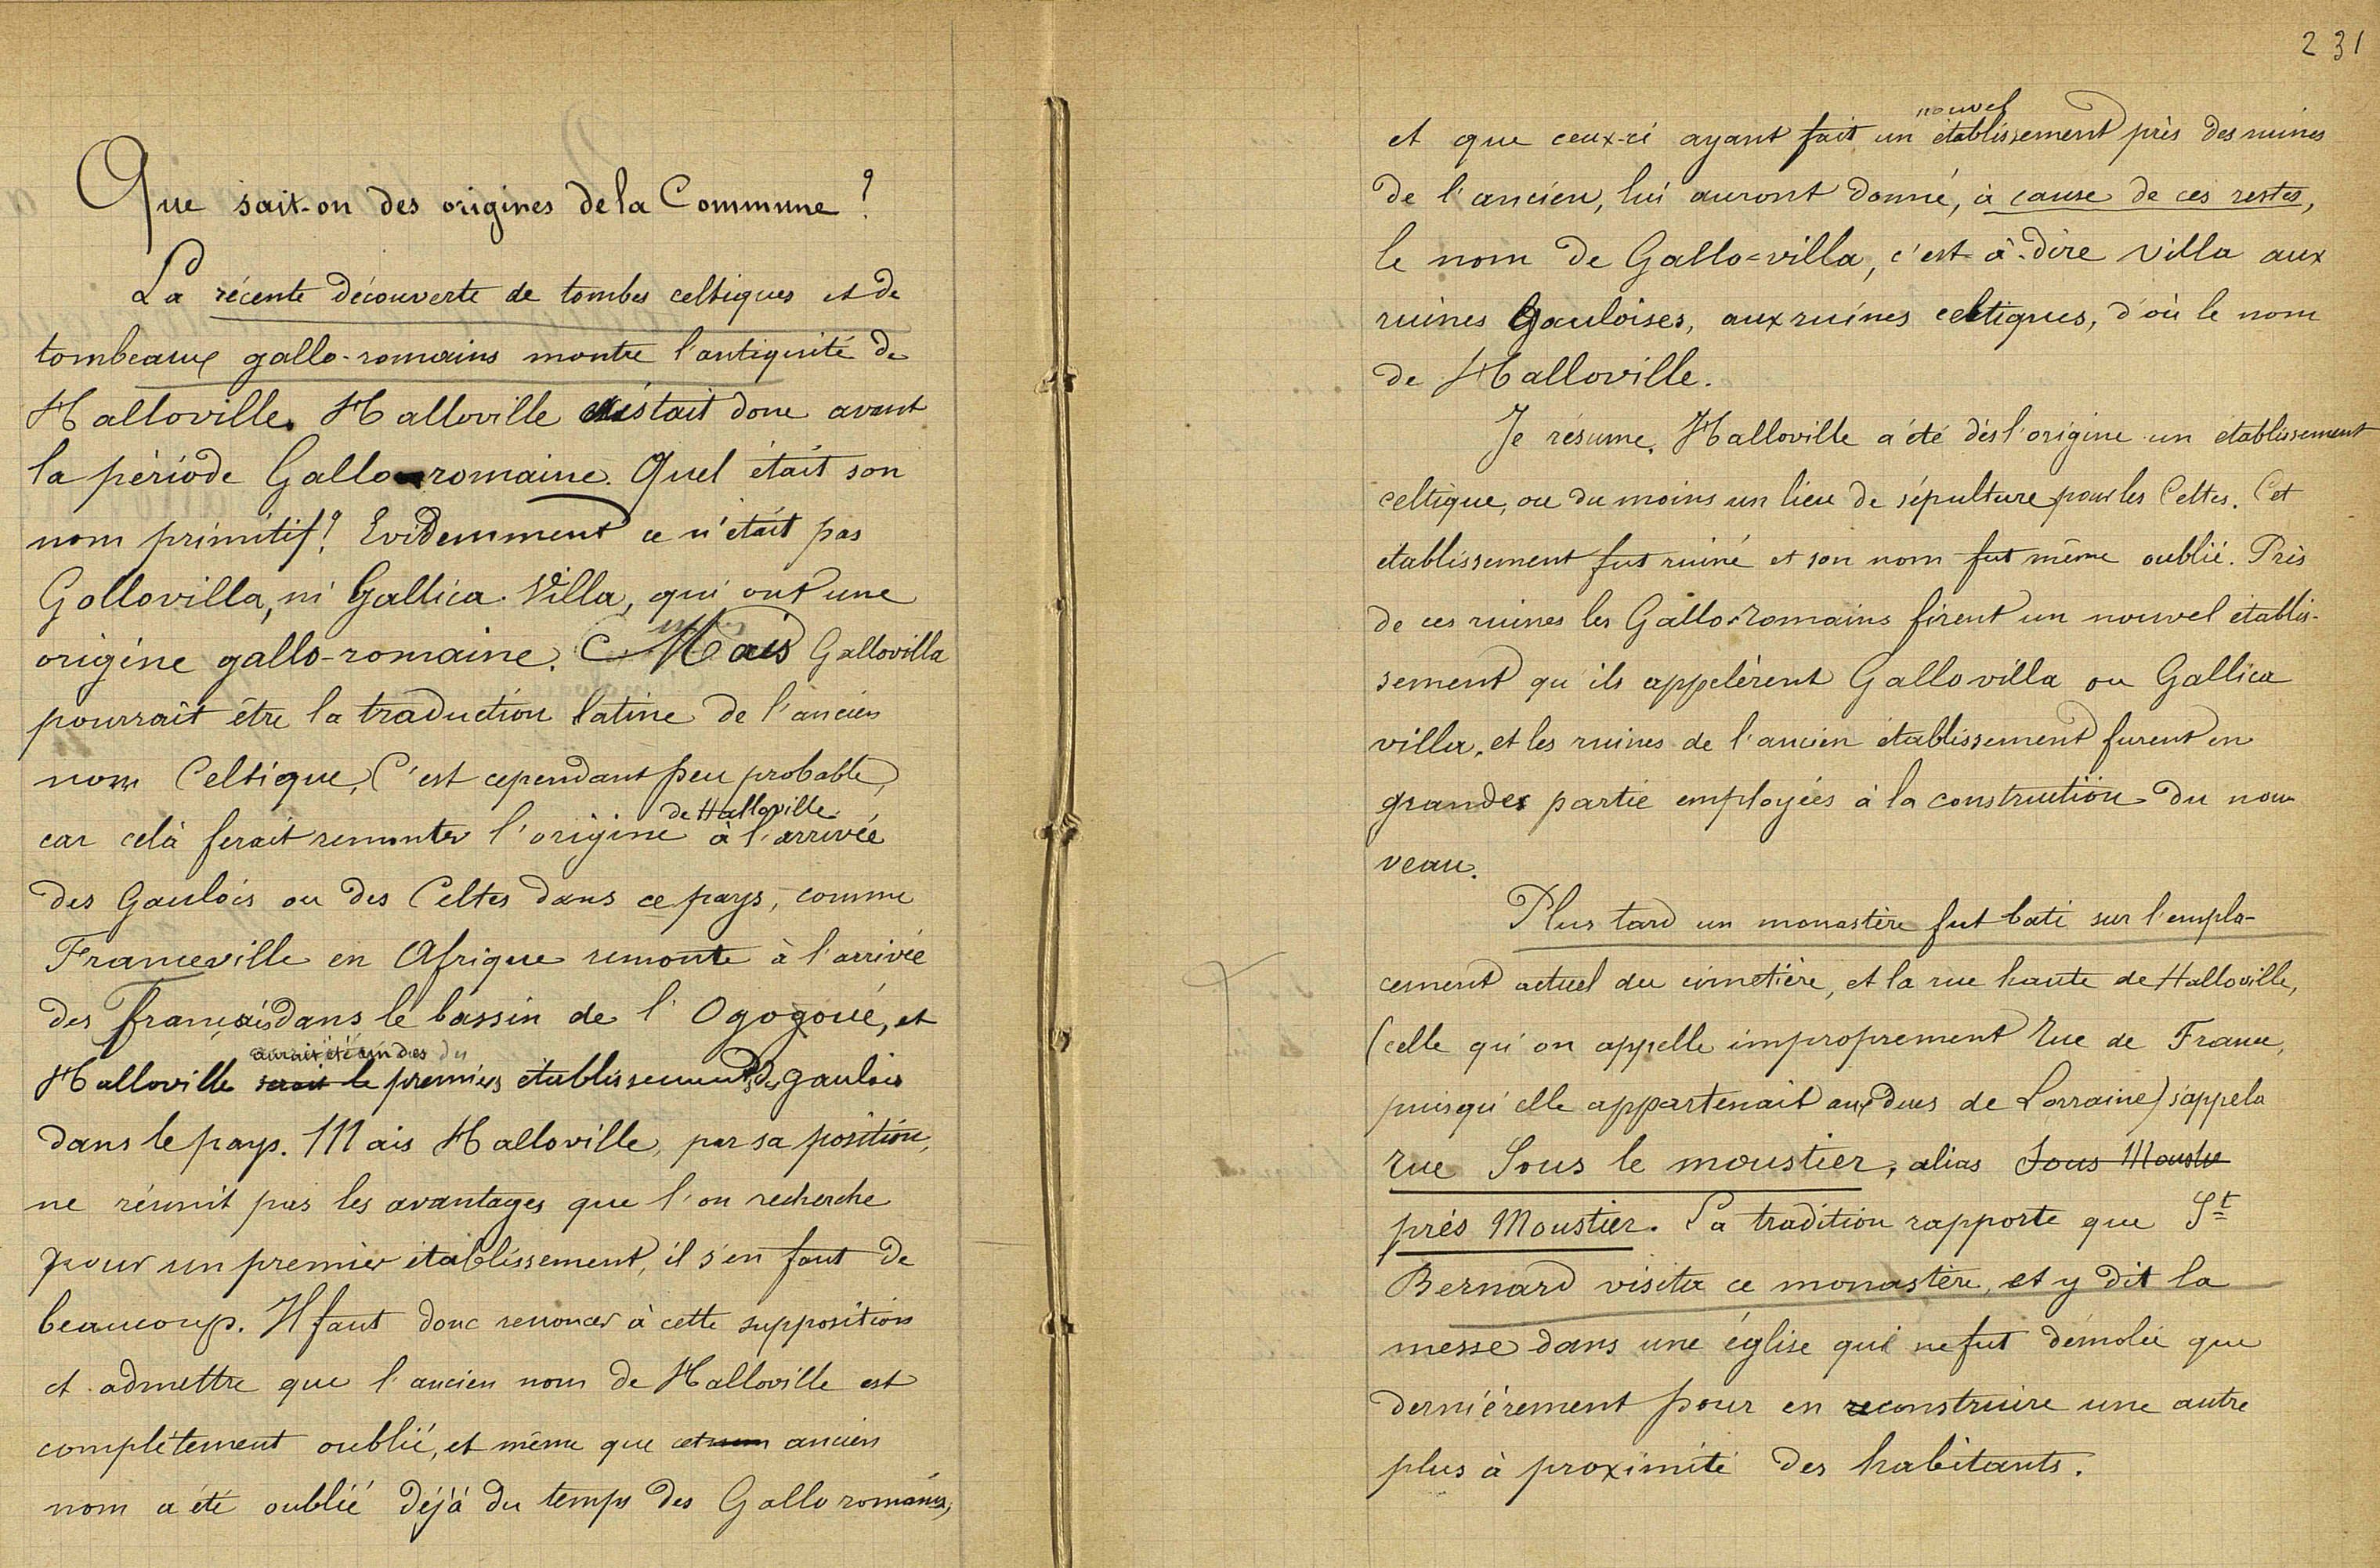 Que sait-on des origines de la Commune ?
La récente découverte de tombes celtiques et de
tombeaux gallo-romains montre l'antiquité de
Halloville. Halloville existait donc avant
la période Gallo-romaine. Quel était son
nom primitif? Evidemment ce n'était pas
Gollovilla, ni Gallica Villa, qui ont une
origine gallo-romaine. Mais Gallovilla
pourrait être la traduction latine de l'ancien
nom Celtique, C'est cependant peu probable,
de Halloville
car celà ferait remonter l'origine à l'arrivée
des Gaulois ou des Celtes dans ce pays, comme
Franceville en Afrique remonte à l'arrivée
des français dans le bassin de l'Ogogoué, et
aurait été un des du
Halloville serait le premiers établissements des gaulois
dans le pays. Mais Halloville, par sa position,
ne réunit pas les avantages que l'on recherche
pour un premier établissement, il s'en faut de
beaucoup. Il faut donc renoncer à cette supposition
et admettre que l'ancien nom de Halloville est
complétement oublié, et même que cet nom ancien
nom a été oublié déjà du temps des Gallo romains,
231
nouvel
et que ceux-ci ayant fait un établissement près des ruines
de l'ancien, lui auront donné, à cause de ces restes,
le nom de Gallo=villa, c'est-à-dire villa aux
ruines Gauloises, aux ruines celtiques, d'où le nom
de Halloville.
Je résume. Halloville a été dès l'origine un etablissement
celtique, ou du moins un lieu de sépulture pour les Celtes. Cet
établissement fut ruiné et son nom fut même oublié. Près
de ces ruines les Gallo-romains firent un nouvel établis-
sement qu'ils appelèrent Gallovilla ou Gallica
villa, et les ruines de l'ancien établissement furent en
grandes partie employées à la construction du nou
veau.
Plus tard un monastère fut bati sur l'empla-
cement actuel du cimetière, et la rue haute de Halloville,
(celle qu'on appelle improprement Rue de France,
puisqu'elle appartenait aux ducs de Lorraine) s'appela
rue Sous le moustier, alias Sous Moustie
près Moustier. La tradition rapporte que St
Bernard visita ce monastère, et y dit la
messe dans une église qui ne fut démolie que
derniérement pour en reconstruire une autre
plus à proximité des habitants.